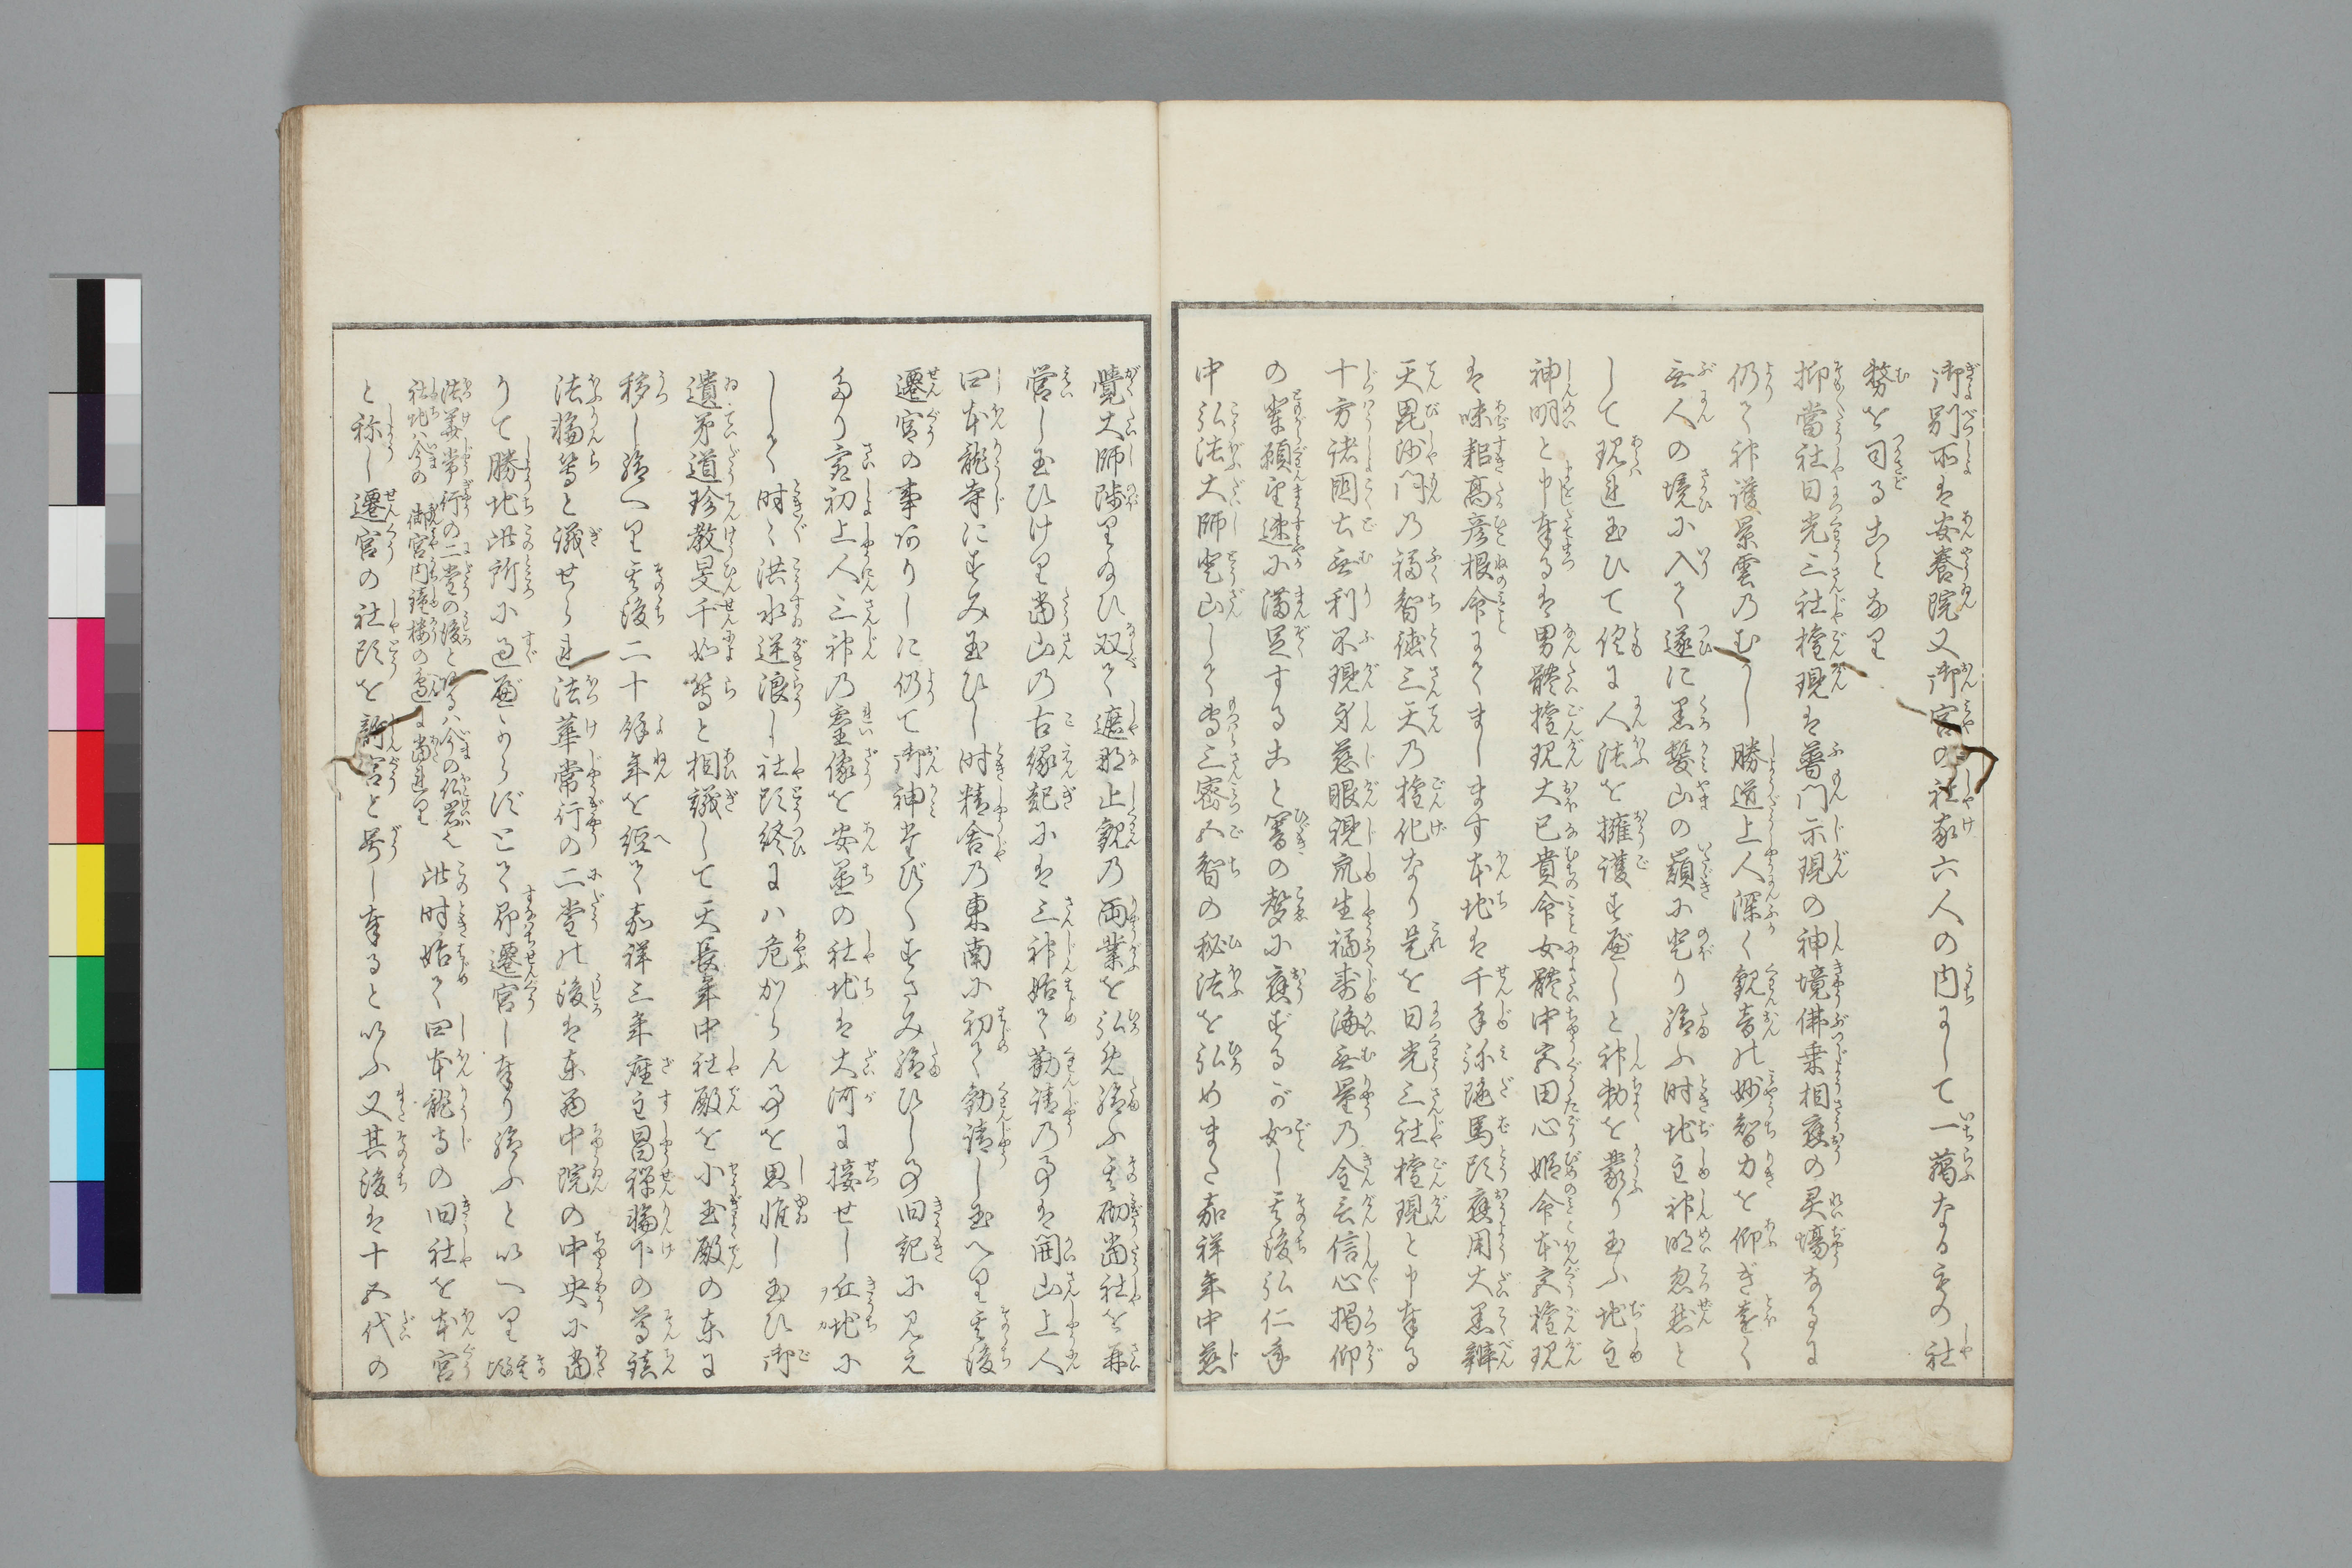 御別所は安養院又御宮の社家六人の内にして一﨟なる者の社
務を司ることなり
抑當社日光三社権現は普門示現の神境佛乗相應の灵場なるに
仍て神護景雲のむかし勝道上人深く観音の妙智力を仰ぎ遠く
無人の境に入て遂に黒髪山の嶺に登り給ふ时地主神明忽然と
して現れ玉ひて俱に人法を擁護すべしと神勅を蒙り玉ふ地主
神明と申奉るは男體権現大已貴命女體中宮田心姫命本宮権現
は味耜高彦根命にてまします本地は千手弥陀馬頭應用大黒辨
天毘沙門の福智徳三天の権化なり是を日光三社権現と申奉る
十方諸國土無刹不現身慈眼視衆生福壽海無量の金言信心掲仰
の輩願望速に満足すること響の聲に應ずるが如し其後弘仁年
中弘法大師登山して専三密五智の秘法を弘めまた嘉祥年中慈
覺大師陟里玉ひ双て遮那止観の両業を弘め給ふ其砌當社を再
営し玉ひけり當山の古縁起には三神始て勧請の事は開山上人
四本龍寺にすみ玉ひし时精舎の東南に初て勧請し玉へり其後
遷宮の事ありしに仍て御神さびくすさみ給ひし事旧記に見え
たり最初上人三神の靈像を安置の社地は大河に接せし丘地に
して时々洪水逆浪し社頭終には危からん事を思惟し玉ひ御
遺弟道珍教旻千如等と相議して天長年中社殿を小玉殿の東に
移し給へり其後二十餘年を経て嘉祥三年座主昌禅輪下の尊鎮
法輪等と議せられ法華常行の二堂の後は東西中院の中央に當
りて勝地此所に過べからずとて即遷宮し奉り給ふといへり
法華常行の二堂の後とあるハ今の仏岩也
社地ハ今の御宮内鐘楼の邊に當れり
此时始て四本龍寺の旧社を本宮
と称し遷宮の社頭を新宮と号し奉るといふ又其後は十五代の